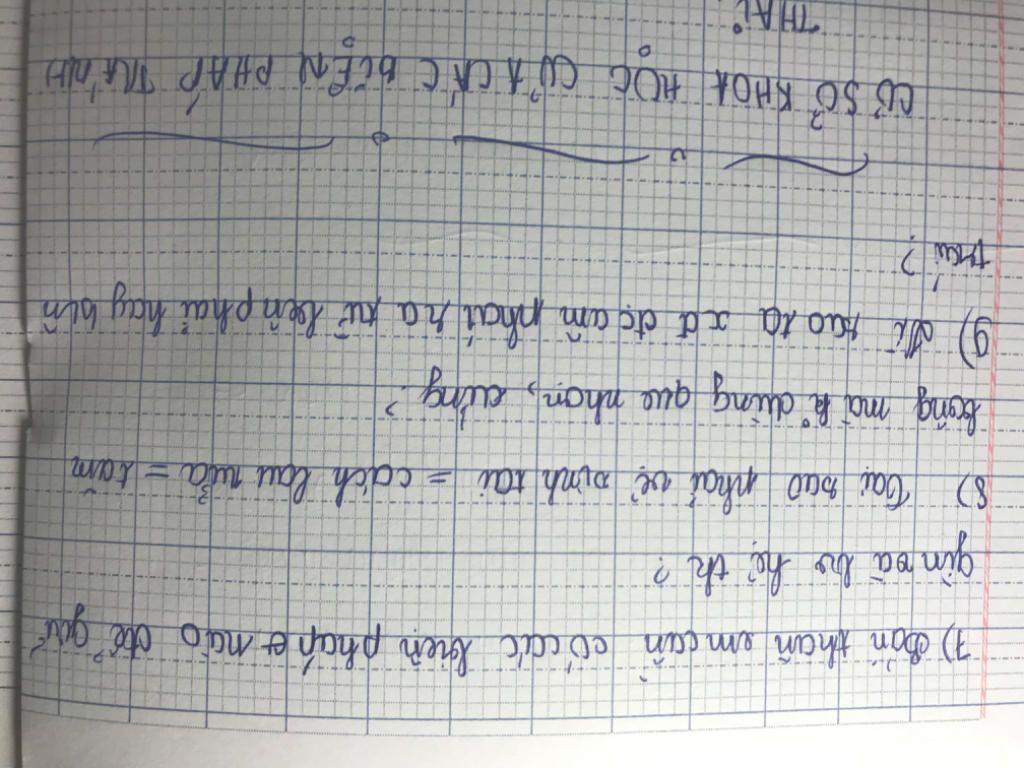 7) Bản thân em cần có các biện pháp nào để giữ
gìn và bv hệ tk?
8) Tại sao phải vệ sinh tai = cách lau rửa = tăm
bông mà k dùng que nhọn, cứng?
9) Vì sao ta xđ đc âm phát ra từ bên phải hay bên
trái?
CƠ SỞ KHOA HỌC CỦA CÁC BIỆN PHÁP TRÁNH
THAI